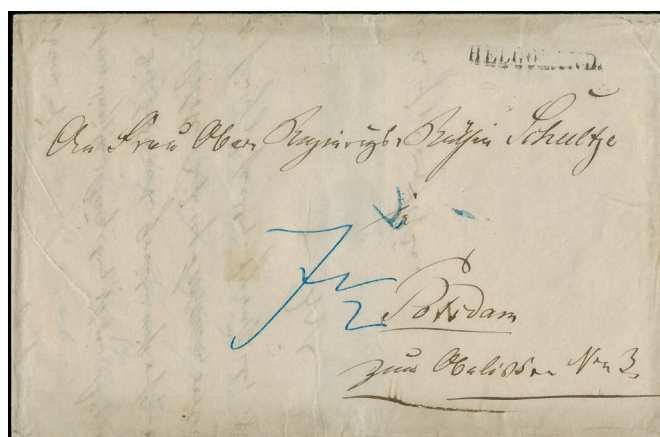 HELGOLAND.
An Frau Ober Regierungs Räthin Schultze
in
Potsdam
zum Obelisken Nro 3.